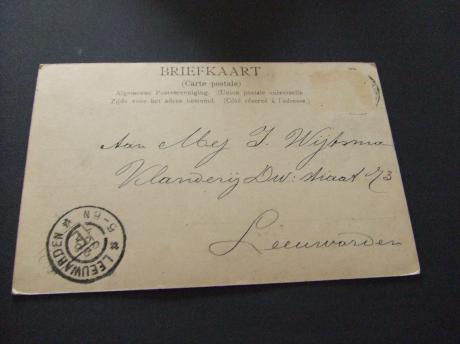 BRIEFKAART
(Carte postale)
Algemeene Postvereeniging. (Union postale universelle
Zijde voor het adres bestemd. (Côté réservé à l'adresse.)
Aan Mej J. Wijbsma
Vlanderij Dw: straat 73
Leeuwarden
LEEUWARDEN
5-8N